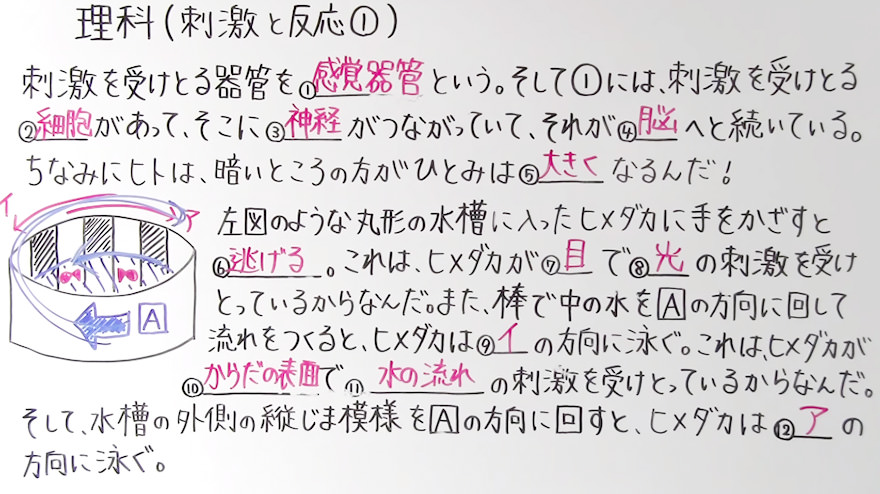 理科(刺激と反応①)
刺激を受けとる器管を①感覚器管という。そして①には、刺激を受けとる
②細胞があって、そこに③神経がつながっていて、それが④脳へと続いている。
ちなみにヒトは、暗いところの方がひとみは⑤大きくなるんだ!
イ
ア
A
左図のような丸形の水槽に入ったヒメダカに手をかざすと
⑥逃げる。これは、ヒメダカが⑦目で⑧光の刺激を受け
とっているからなんだ。また、棒で中の水をAの方向に回して
流れをつくると、ヒメダカは⑨イの方向に泳ぐ。これは、ヒメダカが
⑩からだの表面で⑪水の流れの刺激を受けとっているからなんだ。
そして、水槽の外側の縦じま模様をAの方向に回すと、ヒメダカは⑫アの
方向に泳ぐ。